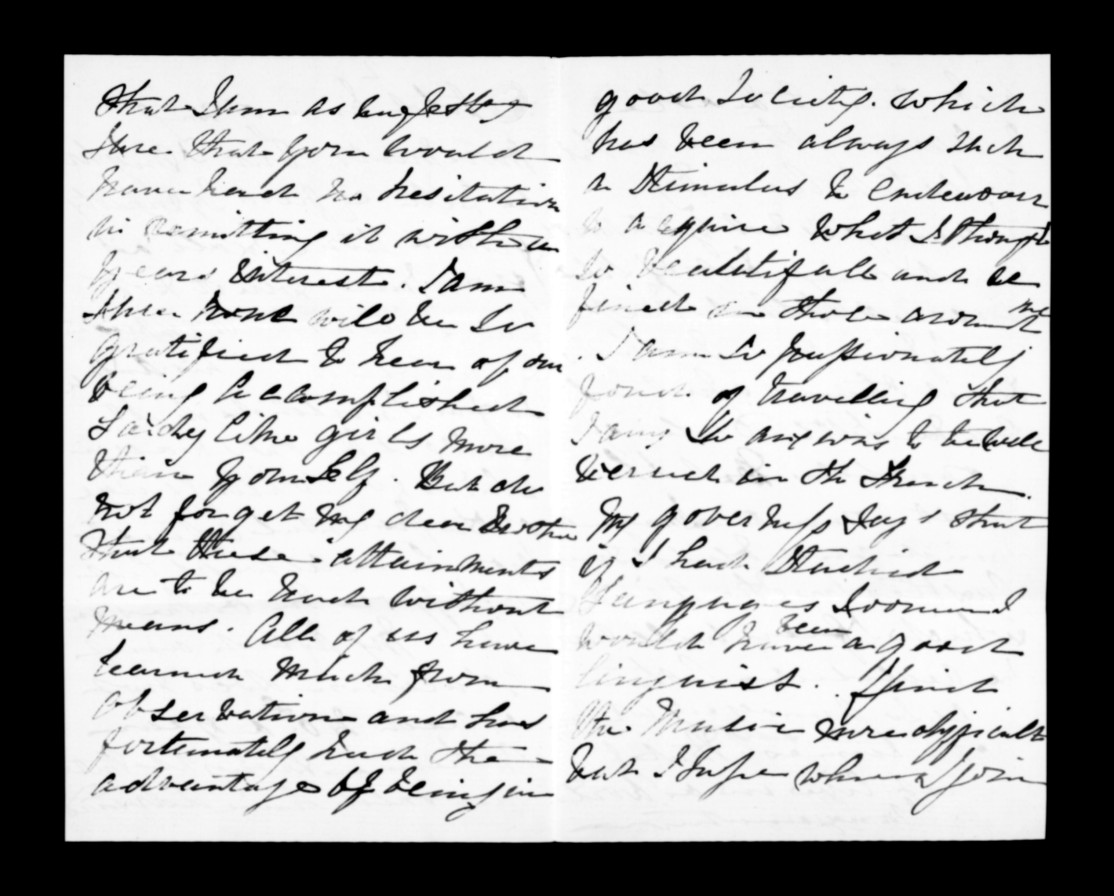 that I am as perfectly
sure that you would
have had no hesitation
in remitting it with
years interest. I am
sure none will be so
gratified to hear of our
being accomplished
Lady like girls more
than yourself. But do
not forget my dear
that these attainments
are to be had without
means. All of us have
learned much from
observation and have
fortunately had the
advantage of being in
good Society. which
has been always such
a Stimulus to endeavour
to acquire what I thought
so beautiful and
in those around me
. I am so passionately
fond of travelling that
I am so anxious to be well
versed in the French.
My governess says that
if I had Studied
Languages I
would have been a good
linguist. I find
the Music more difficult
but I hope when I join